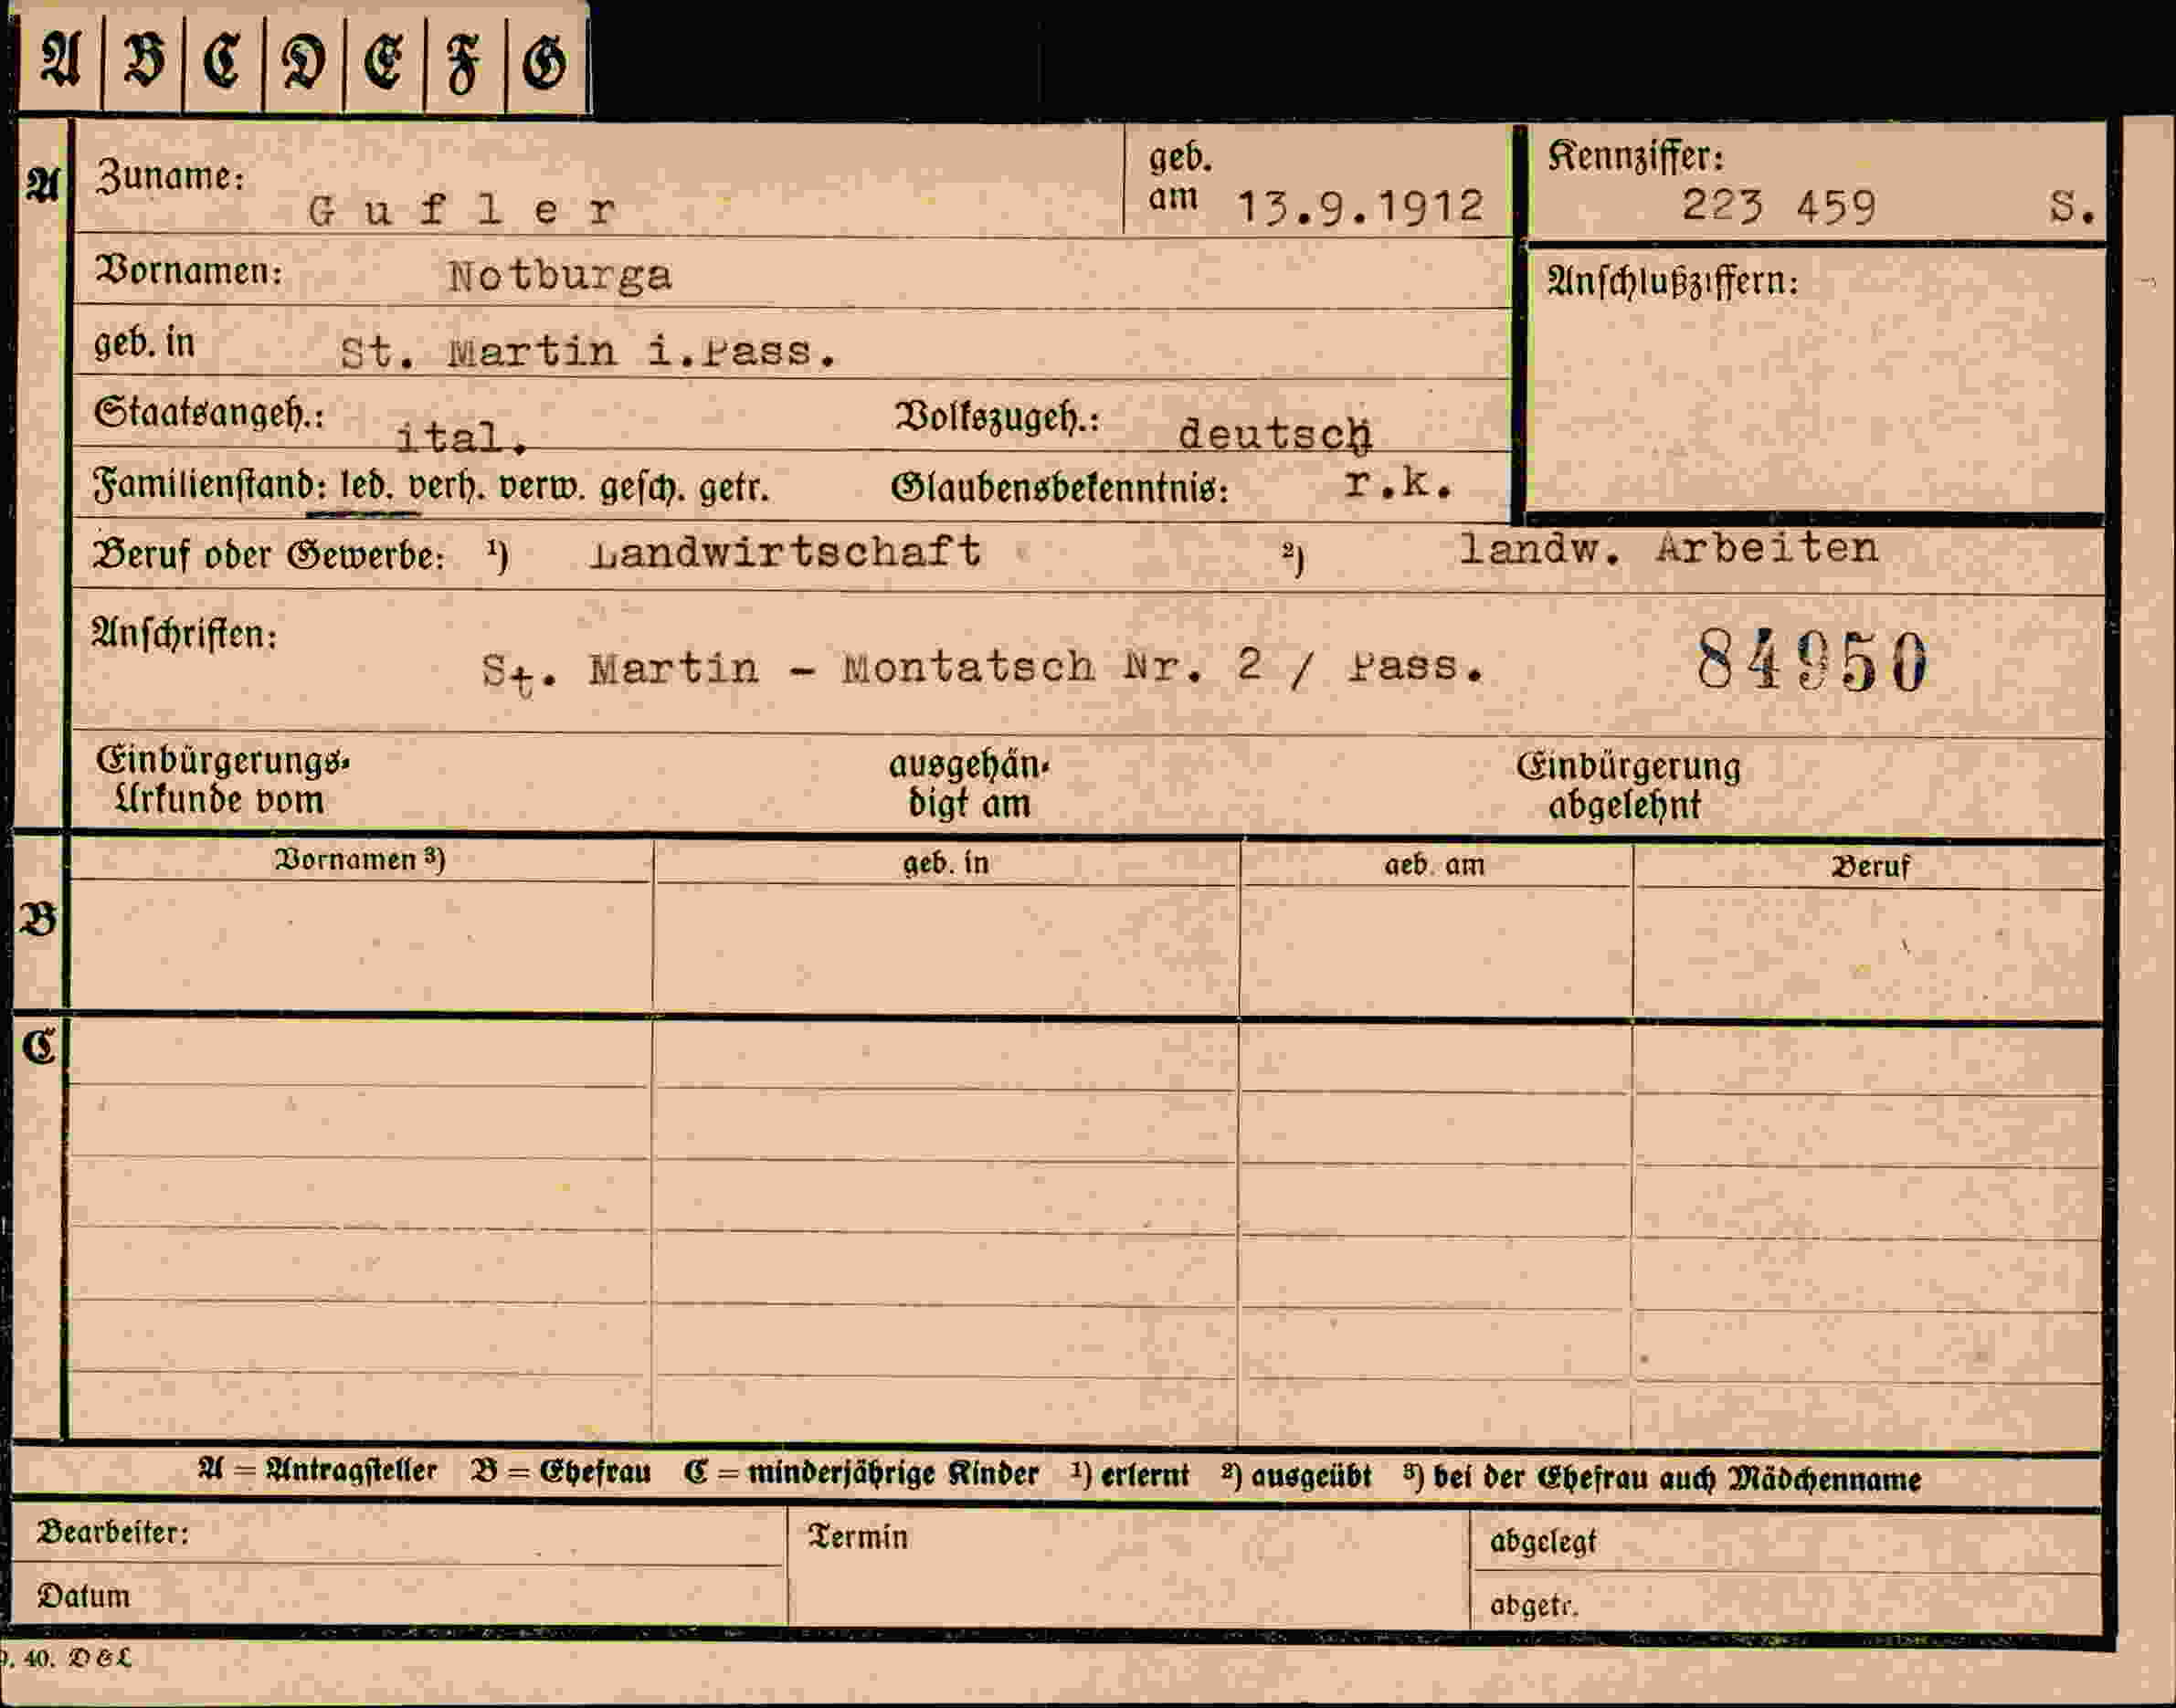 A B C D E F G
A Zuname: Gufler geb. am 13.9.1912 Kennziffer: 223 459 S.
Vornamen: Notburga Anschlußziffern:
geb. in St. Martin i.Pass.
Staatsangeh.: ital. Volkszugeh.: deutsch
Familienstand: led. verh. verw. gesch. getr. Glaubensbekenntnis: r.k.
Beruf oder Gewerbe: ¹) Landwirtschaft ²) landw. Arbeiten
Anschriften: St. Martin - Montatsch Nr. 2 / Pass. 84950
Einbürgerungs- ausgehän- Einbürgerung
Urkunde vom digt am abgelehnt
Vornamen ³) geb. in geb. am Beruf
B
C
A = Antragsteller B = Ehefrau C = minderjährige Kinder ¹) erlernt ²) ausgeübt ³) bei der Ehefrau auch Mädchenname
Bearbeiter: Termin abgelegt
Datum abgetr.
40. D & L